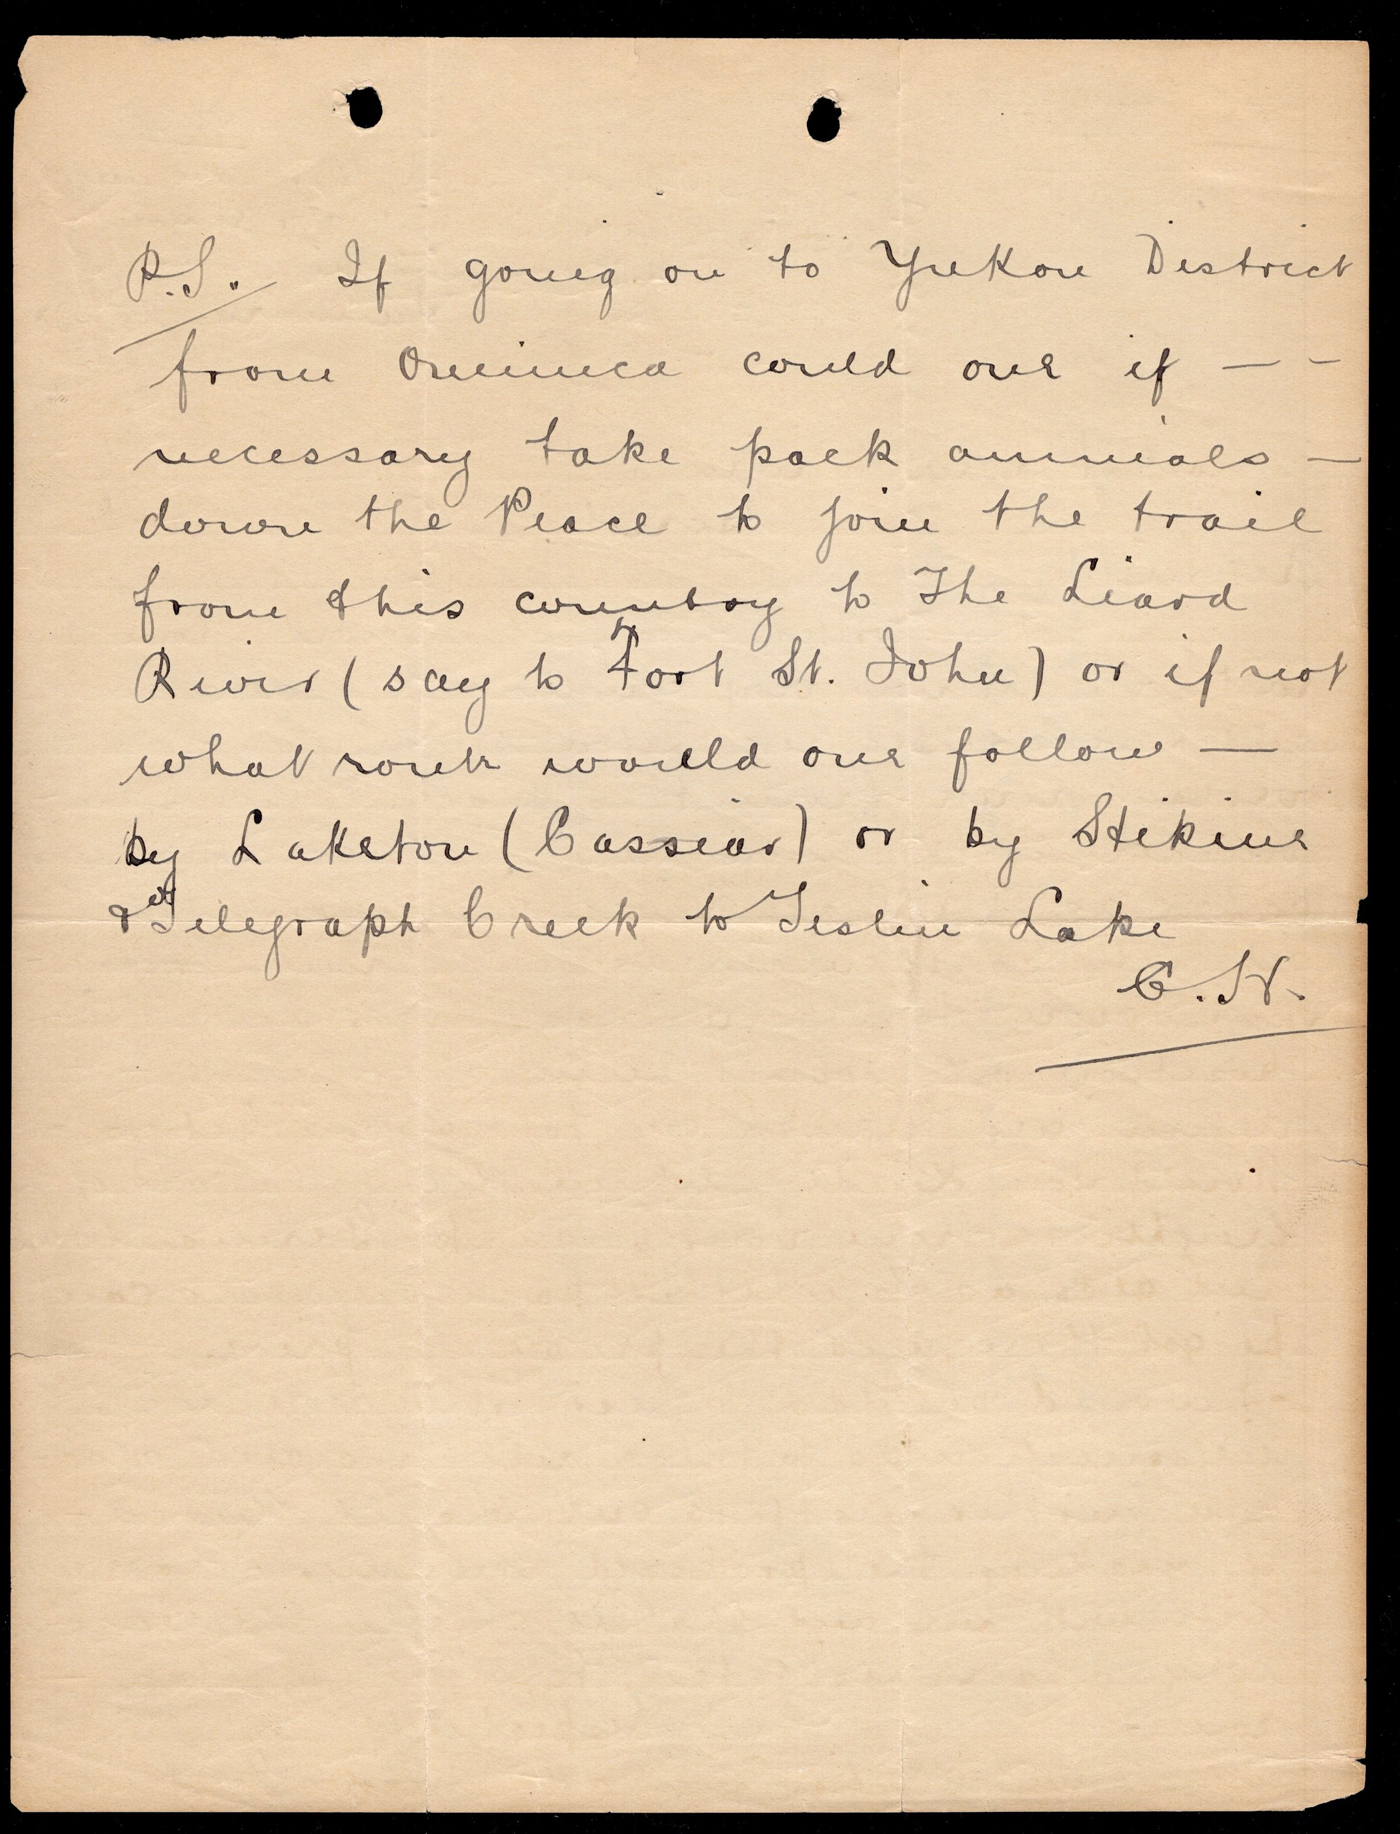 P.S. If going on to Yukon District
from Omineca could one if — -
necessary take pack animals —
down the Peace to join the trail
from this country to The Liard
River (say to Fort St. John) or if not
what route would one follow —
by Laketon (Cassiar) or by Stikine
& Telegraph Creek to Teslin Lake
C. H.